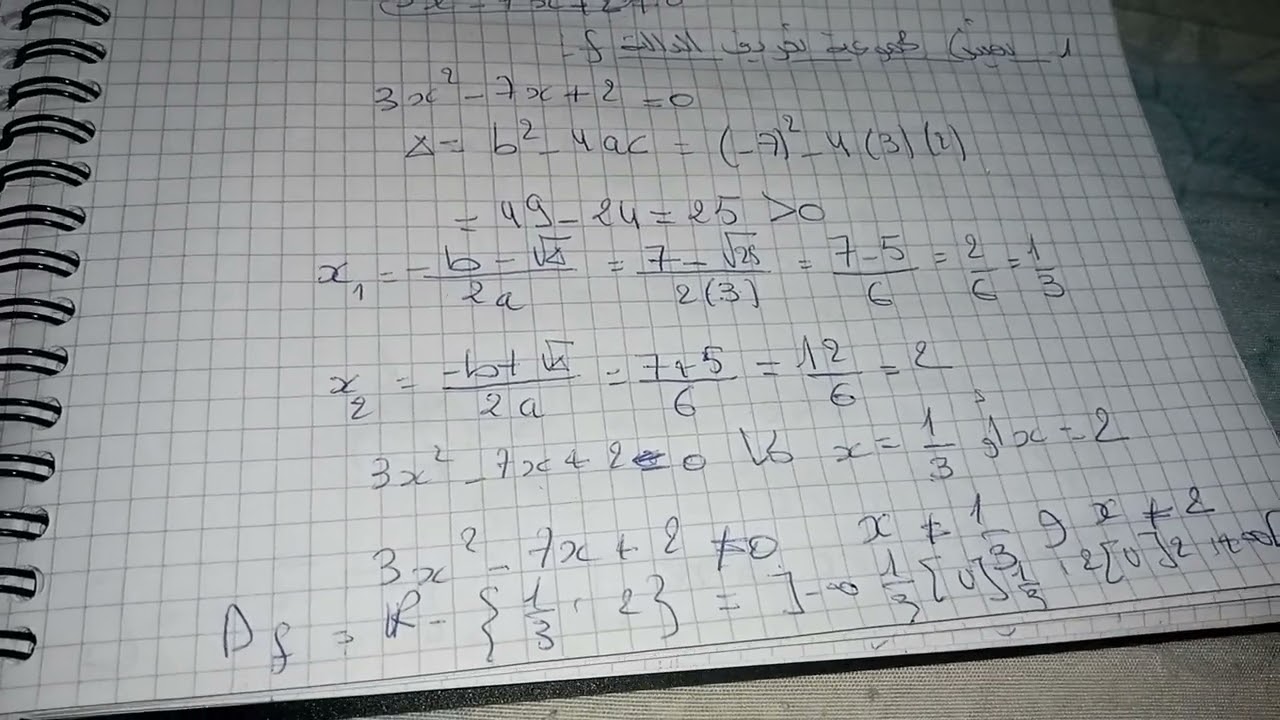 3x² - 7x + 2 ≠ 0
1 - تعيين مجموعة تعريف الدالة f -
3x² - 7x + 2 = 0
Δ = b² - 4ac = (-7)² - 4(3)(2)
= 49 - 24 = 25 > 0
x₁ = (-b - √Δ)/(2a) = (7 - √25)/(2(3)) = (7-5)/6 = 2/6 = 1/3
x₂ = (-b + √Δ)/(2a) = (7+5)/6 = 12/6 = 2
3x² - 7x + 2 = 0 لما x = 1/3 أو x = 2
3x² - 7x + 2 ≠ 0 x ≠ 1/3 و x ≠ 2
Df = ℝ - {1/3, 2} = ]-∞ 1/3[ ∪ ]1/3, 2[ ∪ ]2, +∞[